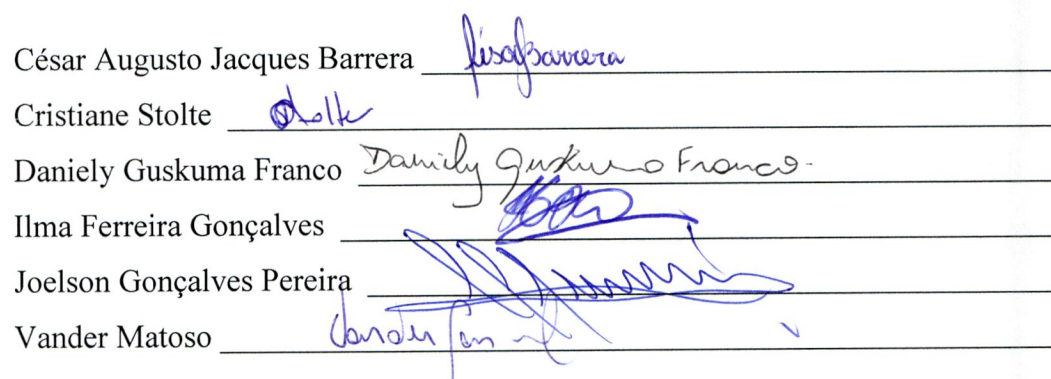 César Augusto Jacques Barrera
Cristiane Stolte Stolte
Daniely Guskuma Franco Daniely Guskuma Franco
Ilma Ferreira Gonçalves
Joelson Gonçalves Pereira
Vander Matoso Vander